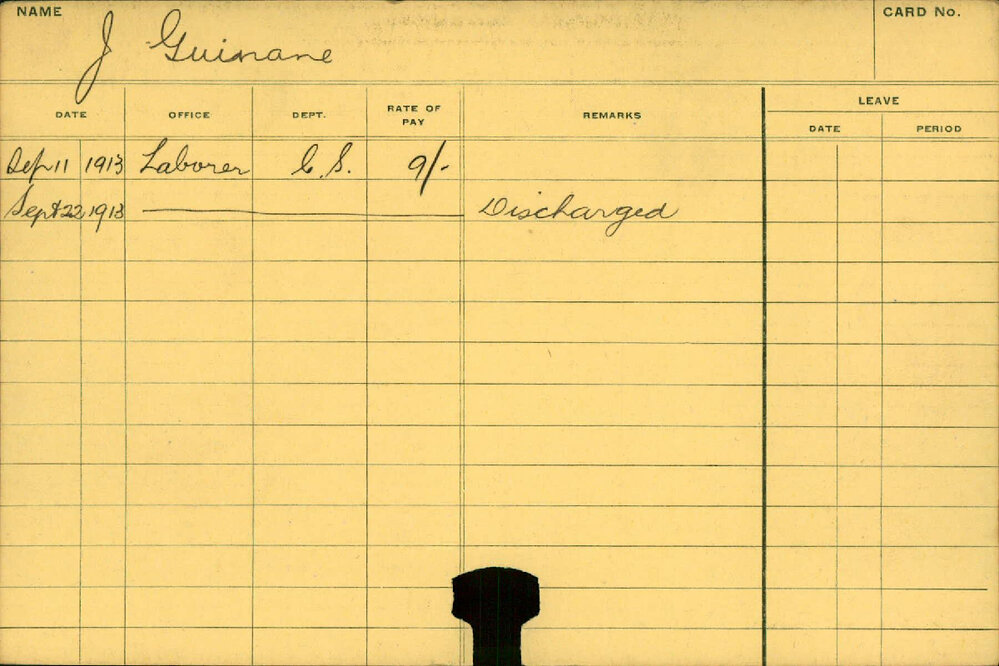 NAME
J Guinane
CARD No.
DATE OFFICE DEPT. RATE OF PAY REMARKS LEAVE
DATE PERIOD
Sep 11 1913 Laborer C.S. 9/-
Sept 22 1913 Discharged